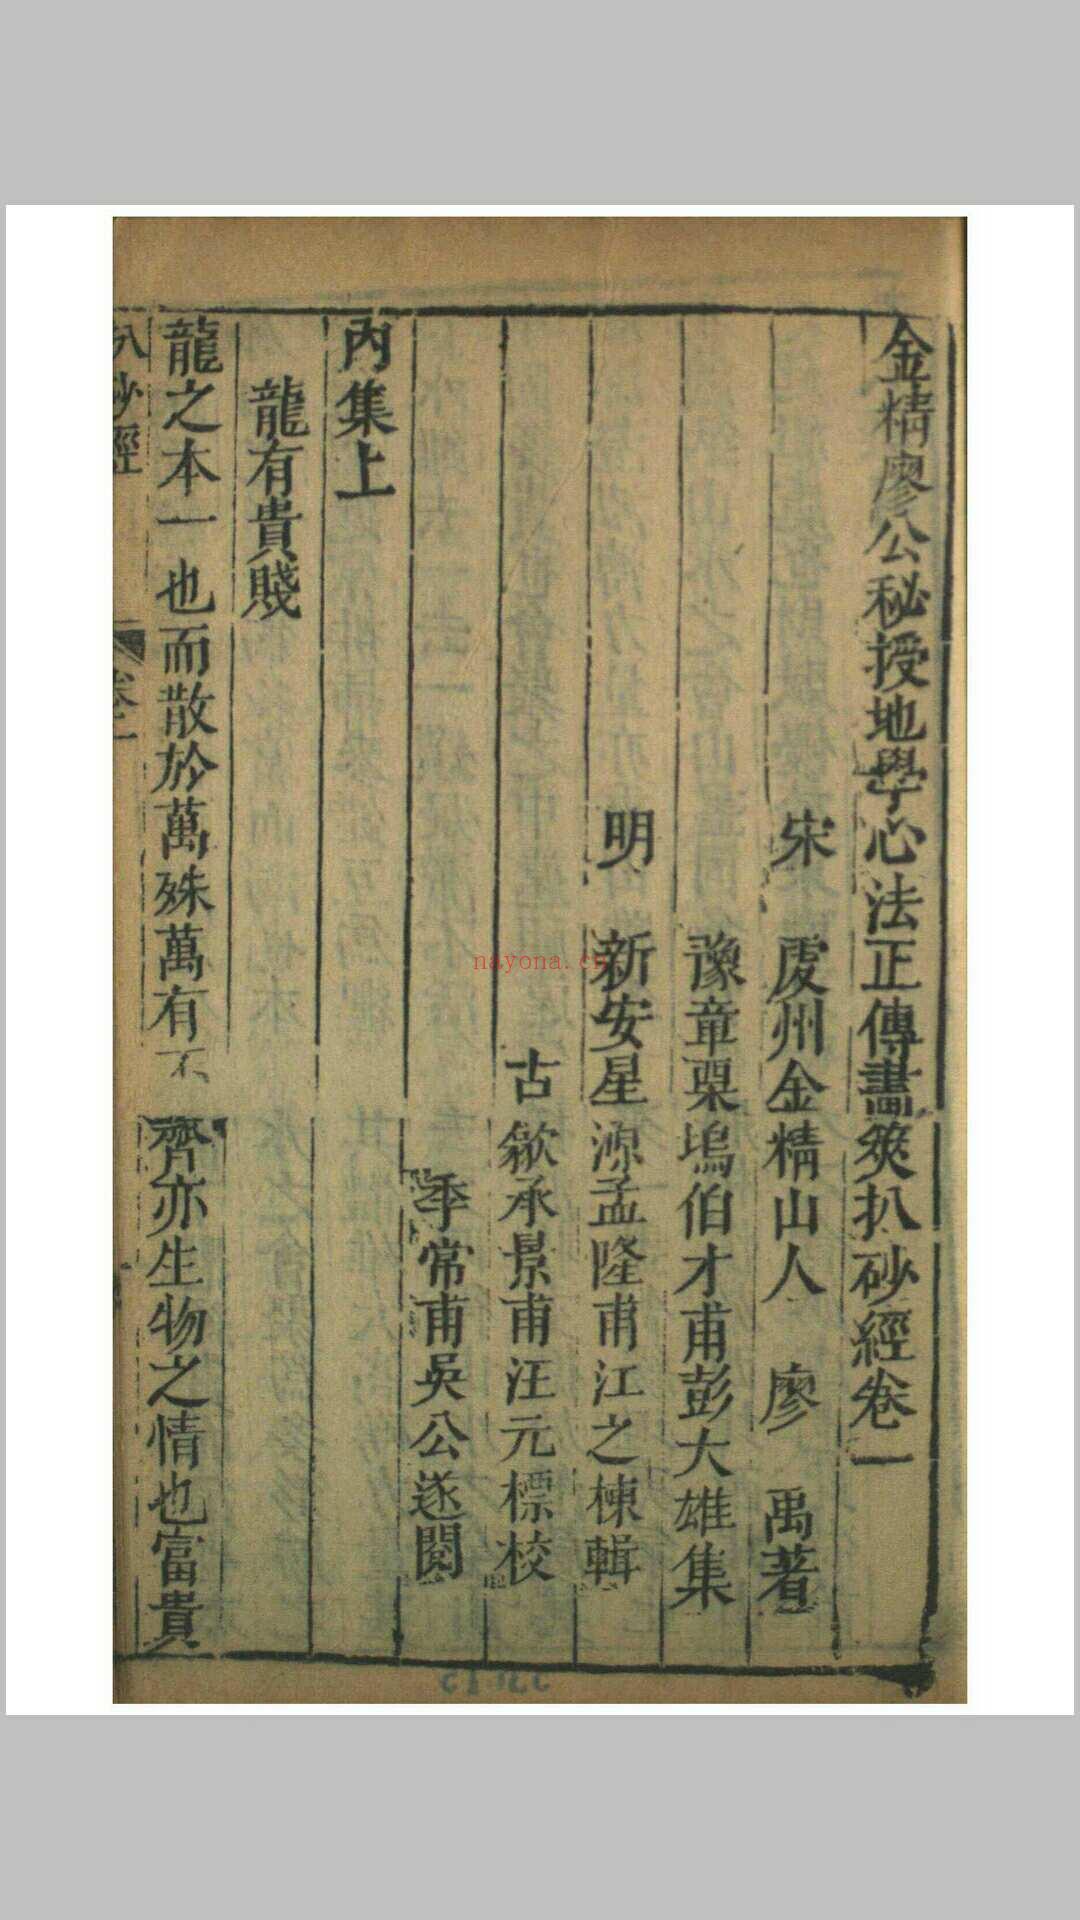 金精廖公秘授地學心法正傳畫筴扒砂經卷一
宋 虔州金精山人 廖 禹著
豫章栗塢伯才甫彭大雄集
明 新安星源孟隆甫江之棟輯
古歙承景甫汪元標校
季常甫吳公遂閱
內集上
龍有貴賤
龍之本一也而散於萬殊萬有不齊亦生物之情也富貴
扒砂經 卷一
nayona.cn